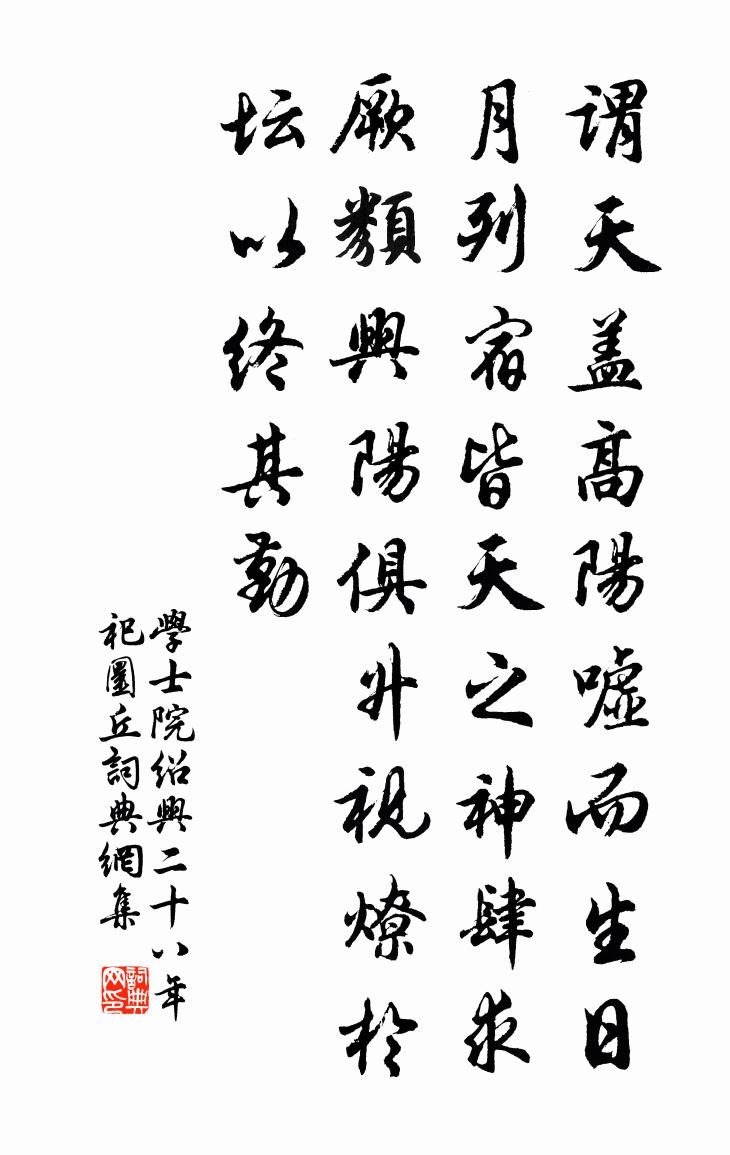 謂天盖高陽嘘而生日
月列宿皆天之神肆求
厥類興陽俱升視燎於
坛以终其勤
學士院绍興二十八年
祀圜丘詞典網集
詞典网印